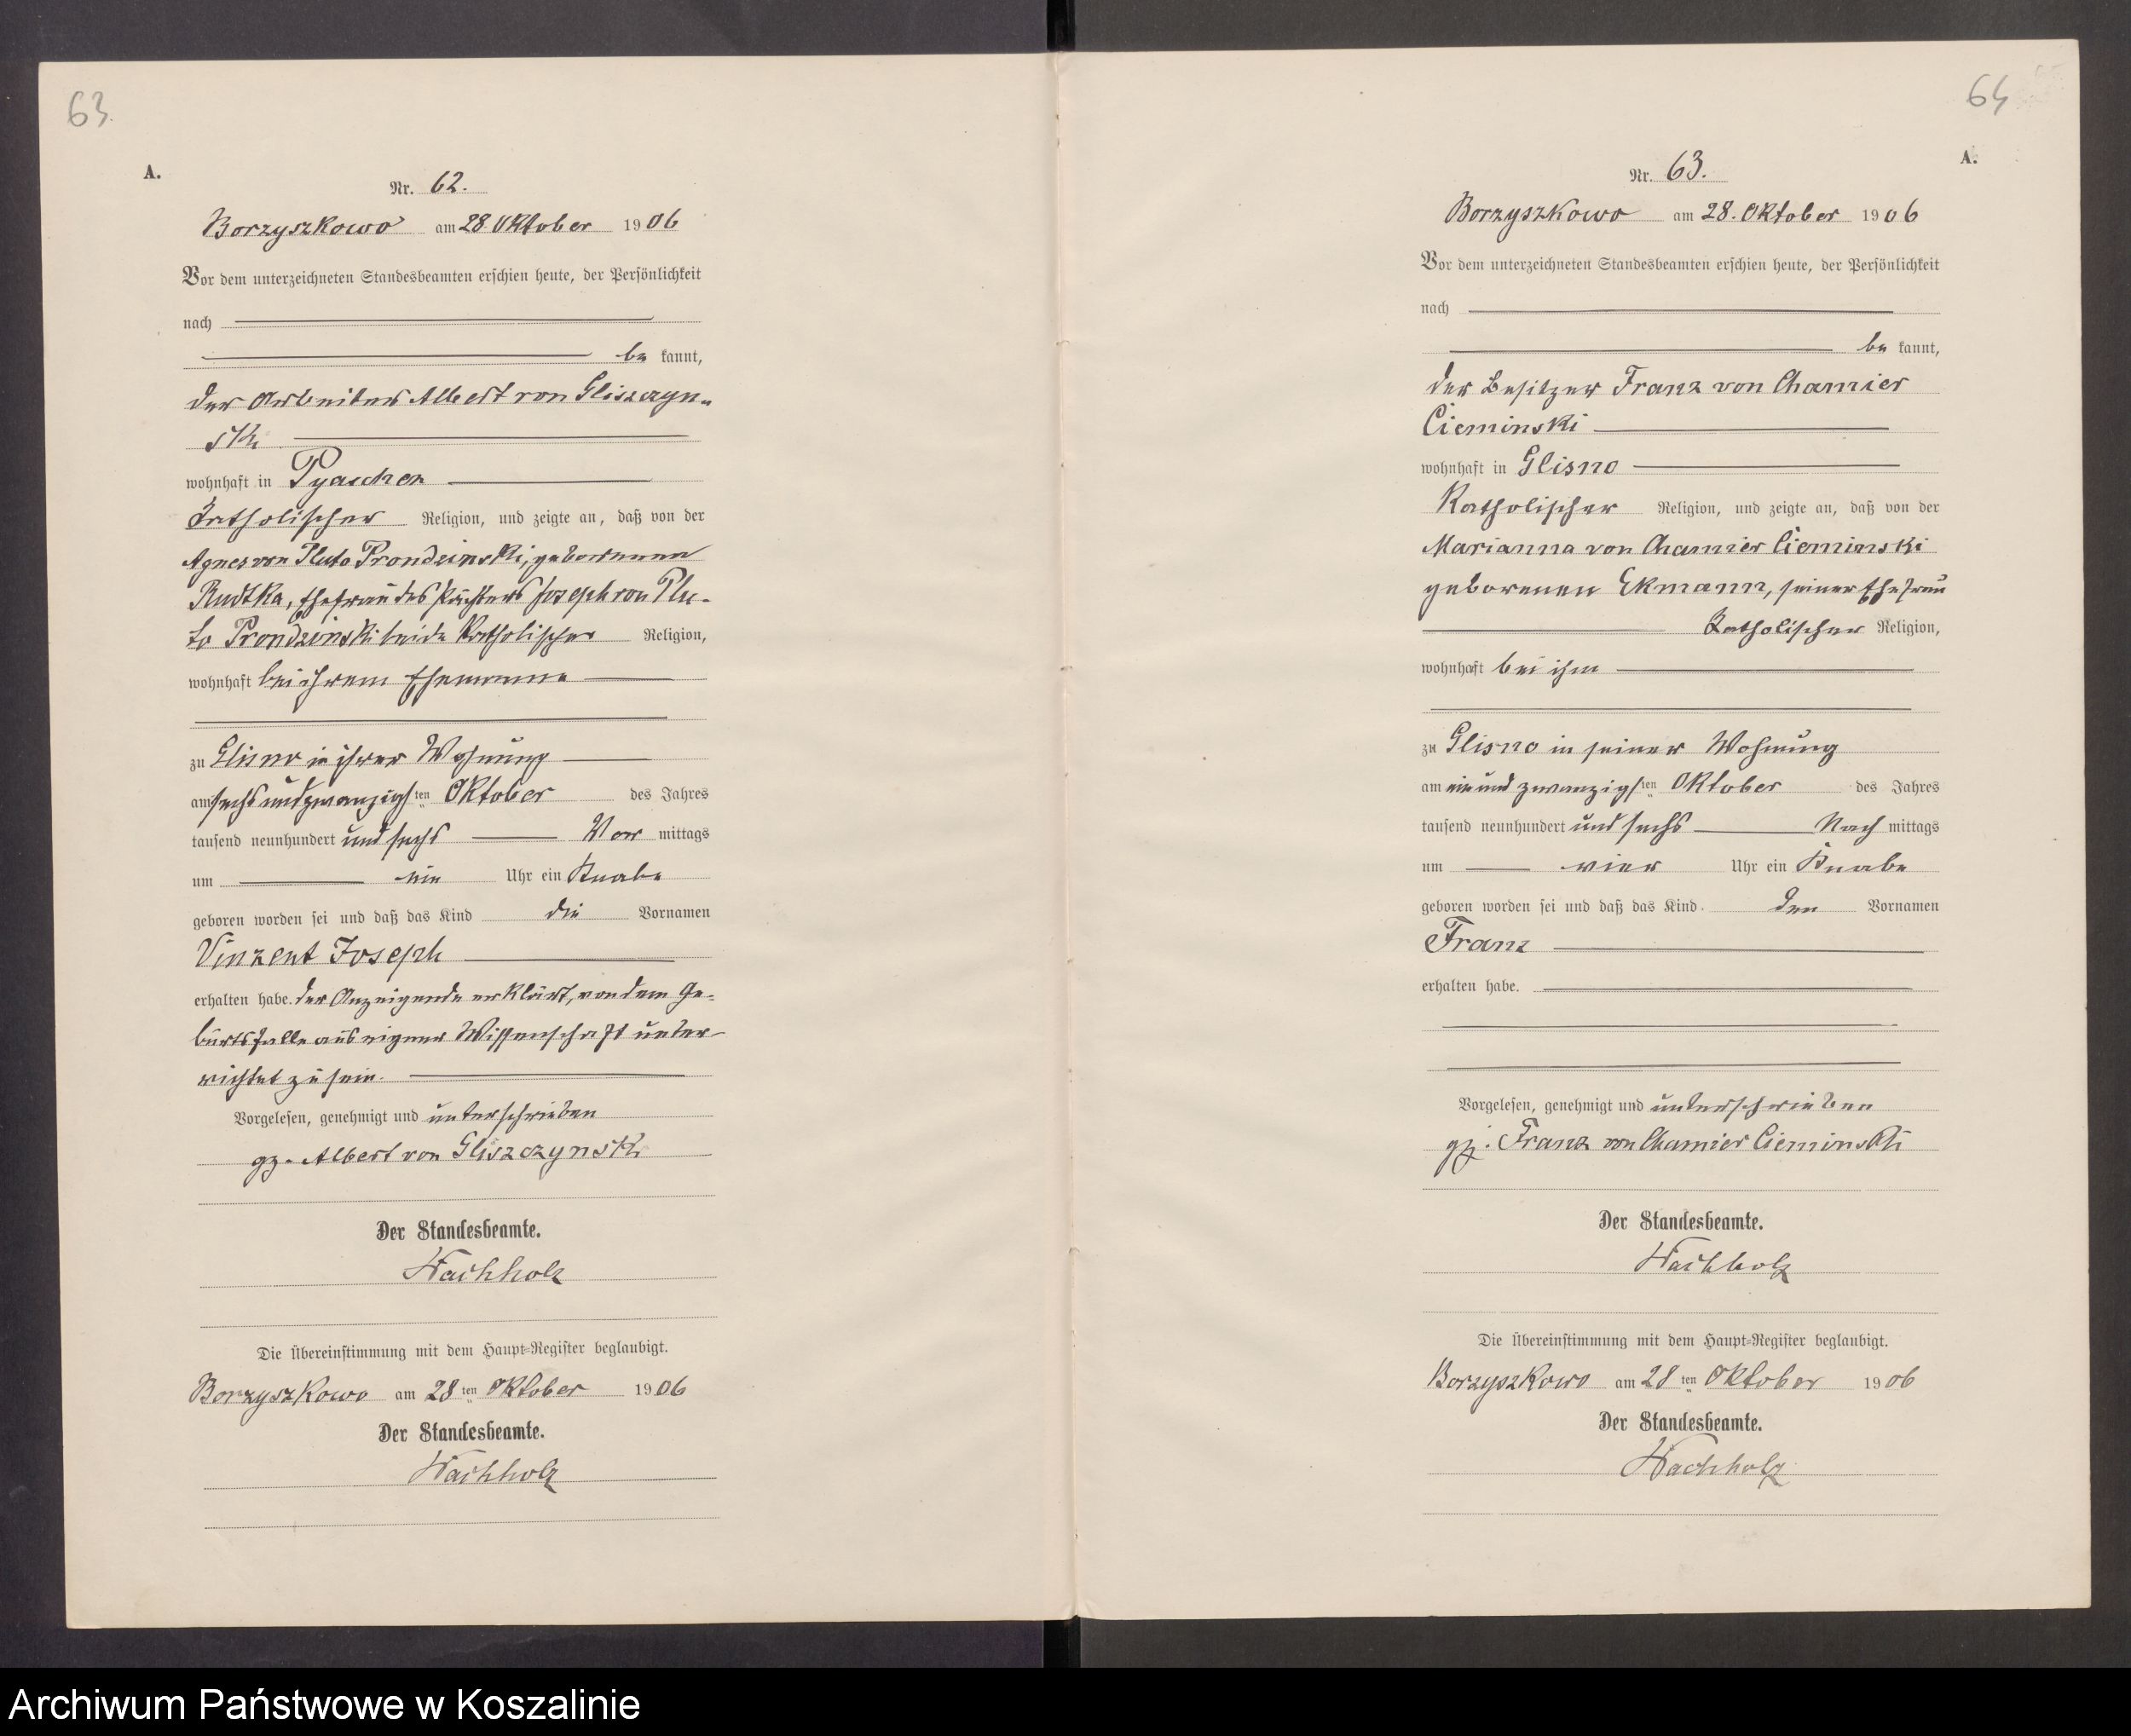 63.
A.
Nr. 62.
Borzyszkowo am 28. Oktober 1906
Vor dem unterzeichneten Standesbeamten erschien heute, der Persönlichkeit
nach
be kannt,
der Arbeiter Albert von Gliszczyn-
ski
wohnhaft in Pyaschen
katholischer Religion, und zeigte an, daß von der
Agnes von Pluto Prondzinski, geborenen
Rudtka, Ehefrau des Pächters Joseph von Plu-
to Prondzinski beide katholischer Religion,
wohnhaft bei ihrem Ehemanne
zu Glisno in ihrer Wohnung
am sechsundzwanzigsten Oktober des Jahres
tausend neunhundert und sechs Vor mittags
um ein Uhr ein Knabe
geboren worden sei und daß das Kind die Vornamen
Vinzent Joseph
erhalten habe. Der Anzeigende erklärt, von dem Ge-
burtsfalle aus eigner Wissenschaft unter-
richtet zu sein.
Vorgelesen, genehmigt und unterschrieben
gz. Albert von Gliszczynski
Der Standesbeamte.
Wachholz
Die Übereinstimmung mit dem Haupt-Register beglaubigt.
Borzyszkowo am 28ten Oktober 1906
Der Standesbeamte.
Wachholz
64
A.
Nr. 63.
Borzyszkowo am 28. Oktober 1906
Vor dem unterzeichneten Standesbeamten erschien heute, der Persönlichkeit
nach
be kannt,
der Besitzer Franz von Chamier
Cieminski
wohnhaft in Glisno
katholischer Religion, und zeigte an, daß von der
Marianna von Chamier Cieminski
geborenen Ekmann, seiner Ehefrau
katholischer Religion,
wohnhaft bei ihm
zu Glisno in seiner Wohnung
am einundzwanzigsten Oktober des Jahres
tausend neunhundert und sechs Nach mittags
um vier Uhr ein Knabe
geboren worden sei und daß das Kind den Vornamen
Franz
erhalten habe.
Vorgelesen, genehmigt und unterschrieben
gz. Franz von Chamier Cieminski
Der Standesbeamte.
Wachholz
Die Übereinstimmung mit dem Haupt-Register beglaubigt.
Borzyszkowo am 28ten Oktober 1906
Der Standesbeamte.
Wachholz
Archiwum Państwowe w Koszalinie